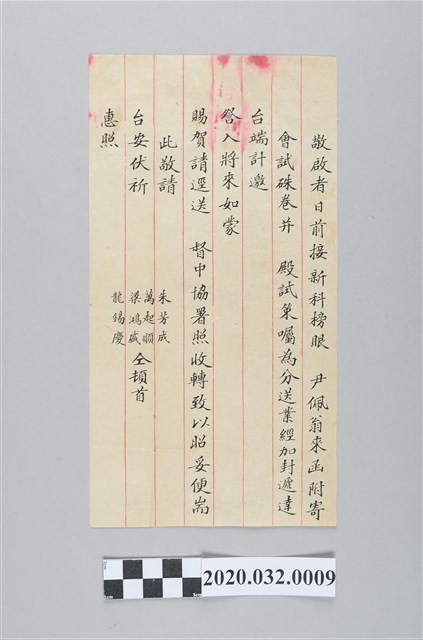 敬啟者日前接 新科榜眼 尹佩翁來函附寄
會試硃卷并 殿試策囑為分送業經加封遞達
台端計邀
詧入將來如蒙
賜賀請逕送 督中協署照收轉致以昭妥便耑
此敬請
台安伏祈
惠照
朱芳成
萬起順
梁鴻盛
龍錫慶
仝頓首
2020.032.0009